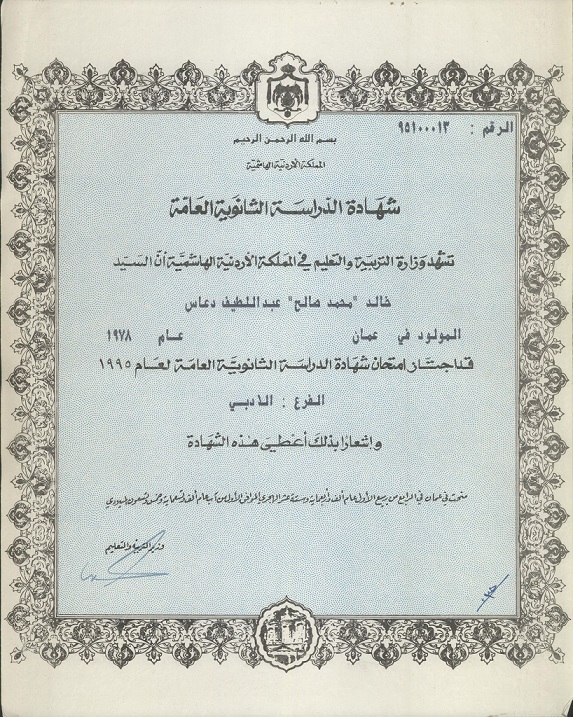 الرقم : ٩٥١٠٠٠١٣
بسم الله الرحمن الرحيم
المملكة الاردنية الهاشمية
شهادة الدراسة الثانوية العامة
تشهد وزارة التربية والتعليم في المملكة الأردنية الهاشمية أن السيد
خالد "محمد صالح" عبداللطيف دعاس
المولود في عمان عام ١٩٧٨
قد اجتاز امتحان شهادة الدراسة الثانوية العامة لعام ١٩٩٥
الفرع : الادبي
وإشعارا بذلك أعطي هذه الشهادة
منحت في عمان في الرابع من ربيع الأول عام ألف وأربعماية وستة عشر الهجري الموافق الأول من آب عام ألف وتسعماية وخمس وتسعون الميلادي
وزير التربية والتعليم